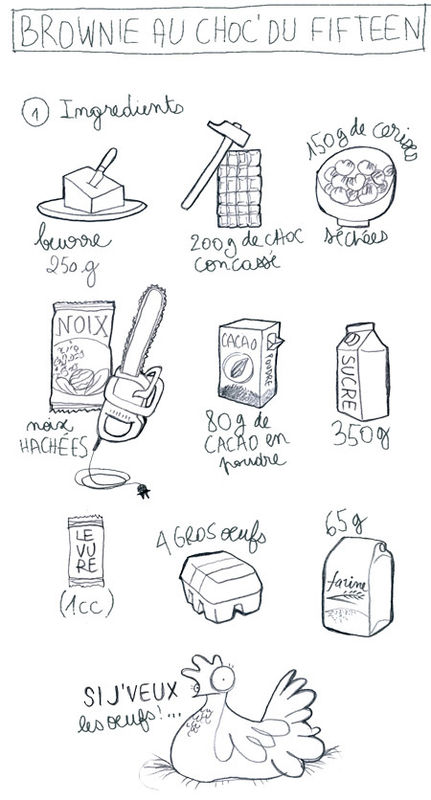 BROWNIE AU CHOC' DU FIFTEEN
1 Ingredients
beurre
250g
200g de CHOC
concassé
150g de cerises
séchées
NOIX
noix
HACHÉES
CACAO
POUDRE
80g de
CACAO en
poudre
SUCRE
350g
LE
VU
RE
(1CC)
4 GROS oeufs
65g
farine
SI J'VEUX
les oeufs!...